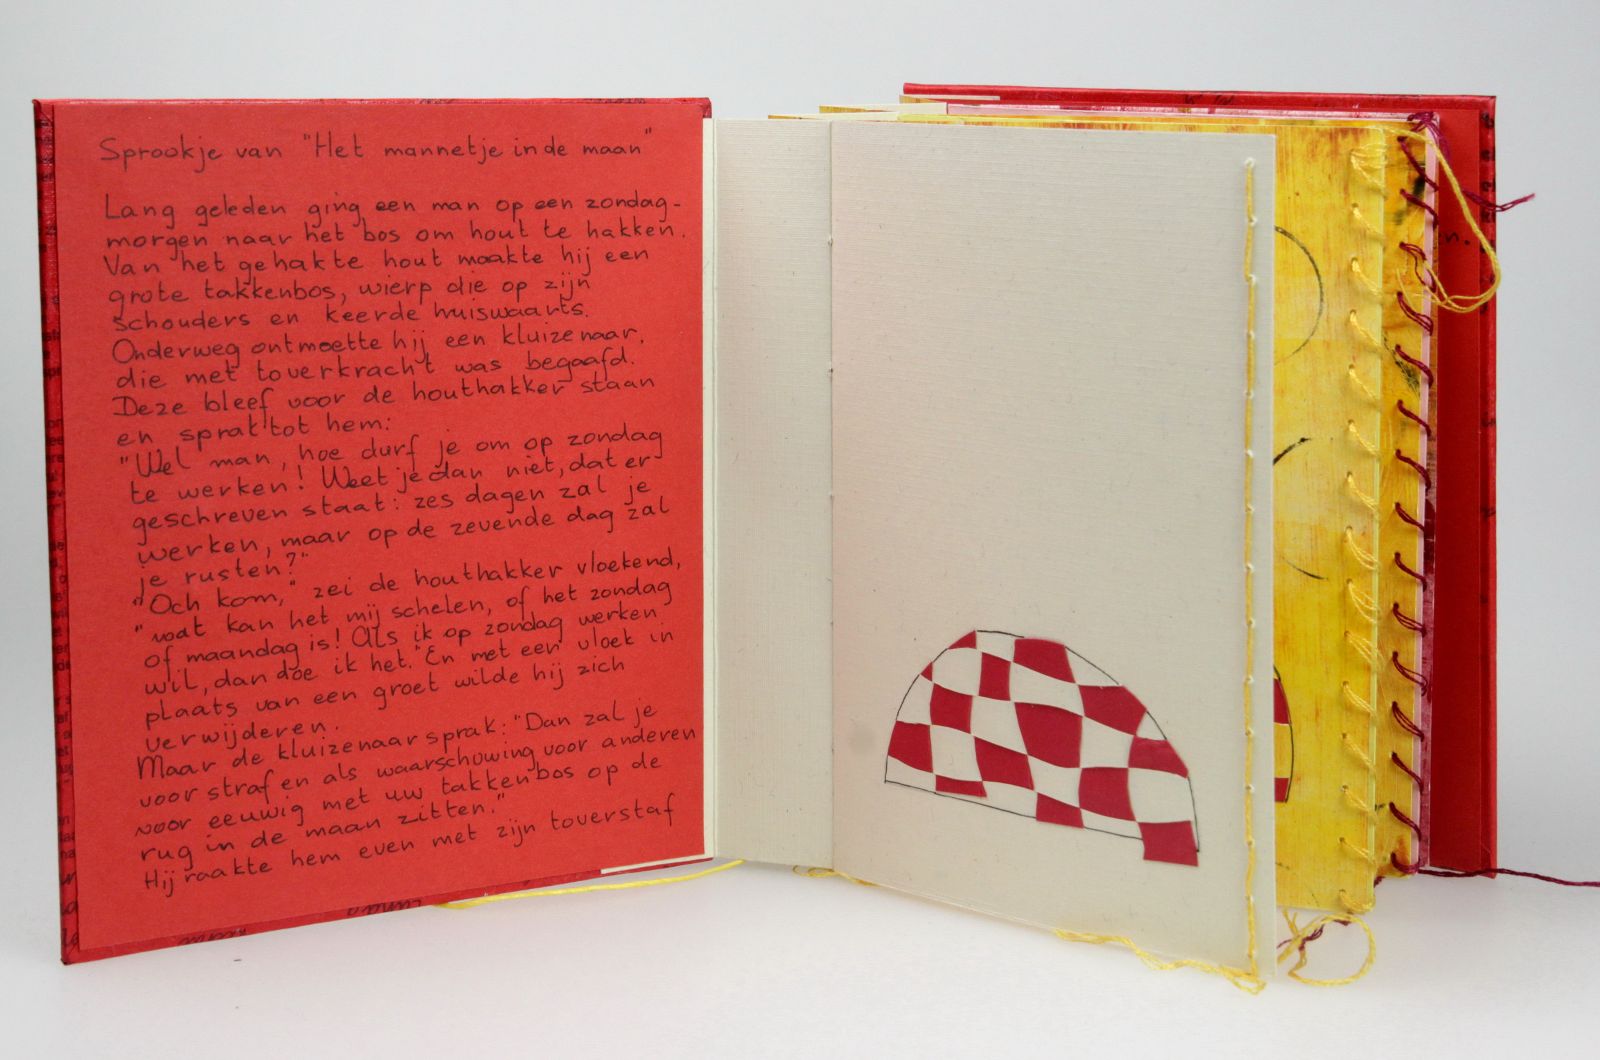 Sprookje van "Het mannetje in de maan"
Lang geleden ging een man op een zondag-
morgen naar het bos om hout te hakken.
Van het gehakte hout maakte hij een
grote takkenbos, wierp die op zijn
schouders en keerde huiswaarts.
Onderweg ontmoette hij een kluizenaar,
die met toverkracht was begaafd.
Deze bleef voor de houthakker staan
en sprak tot hem:
"Wel man, hoe durf je om op zondag
te werken! Weet je dan niet, dat er
geschreven staat: zes dagen zal je
werken, maar op de zevende dag zal
je rusten?"
"Och kom," zei de houthakker vloekend,
"wat kan het mij schelen, of het zondag
of maandag is! Als ik op zondag werken
wil, dan doe ik het." En met een vloek in
plaats van een groet wilde hij zich
verwijderen.
Maar de kluizenaar sprak: "Dan zal je
voor straf en als waarschuwing voor anderen
voor eeuwig met uw takkenbos op de
rug in de maan zitten."
Hij raakte hem even met zijn toverstaf